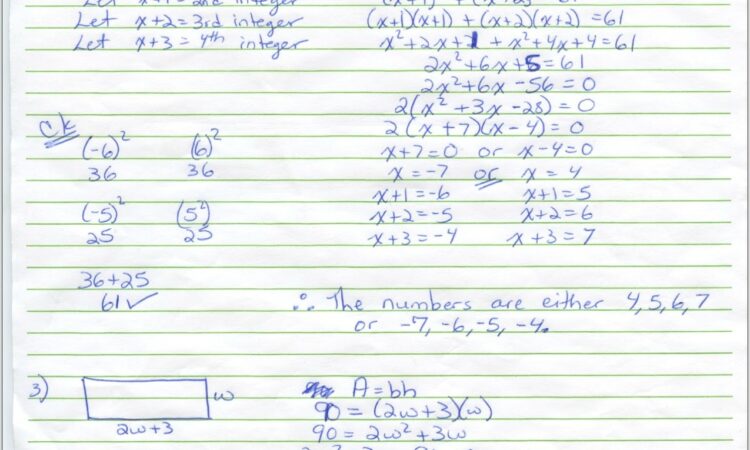 Let x+1 = 2nd integer
Let x+2 = 3rd integer
Let x+3 = 4th integer
(x+1)(x+1) + (x+2)(x+2) = 61
x²+2x+1 + x²+4x+4 = 61
2x²+6x+5 = 61
2x²+6x-56 = 0
2(x²+3x-28) = 0
2(x+7)(x-4) = 0
x+7=0 or x-4=0
x = -7 or x = 4
x+1=-6 x+1=5
x+2=-5 x+2=6
x+3=-4 x+3=7
Ck
(-6)² (6)²
36 36
(-5)² (5²)
25 25
36+25
61✓
∴ The numbers are either 4,5,6,7
or -7,-6,-5,-4.
3)
w
2w+3
A=bh
90 = (2w+3)(w)
90 = 2w²+3w